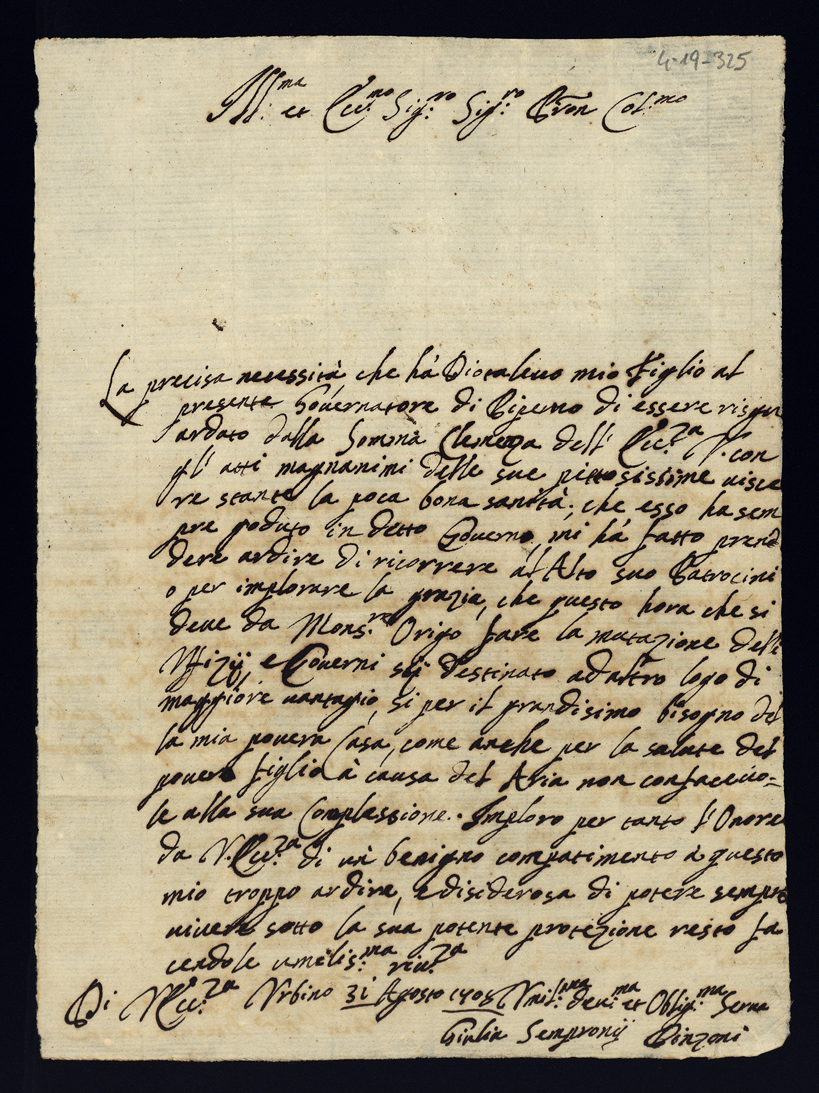 4-19-325
Ill:ma et Ecc:mo Sig:re Sig:re Pron Col:mo
La precisa necessità che hà Diotalevo mio Figlio al
presente Governatore di Piperno di essere risgu
ardato dalla Somma Clemenza dell' Ecc:za V. con
gl' atti magnanimi delle sue pietosissime visce
re stante la poca bona sanità, che esso ha sem
pre goduto in detto Governo, mi hà fatto pren
dere ardire di ricorrere al Alto suo Patrocini
o per implorare la grazia, che questo hora che si
deve da Mons:re Origo fare la mutazione delli
Uffizij, e Governi sij destinato ad altro logo di
maggiore vantagio, si per il grandisimo bisogno del
la mia povera Casa, come anche per la salute del
povero figlio à causa del Aria non confaccivo=
le alla sua Complessione. Imploro per tanto l'Onore
da V. Ecc:za di un' benigno compatimento à questo
mio troppo ardire, e disiderosa di potere sempre
vivere sotto la sua potente protezione resto fa
cendole umilis:ma riv:za
Di V Ecc:za Urbino 31 Agosto 1705 Umil:ma dev:ma et Oblig:ma Serva
Giulia Sempronij Pinzoni